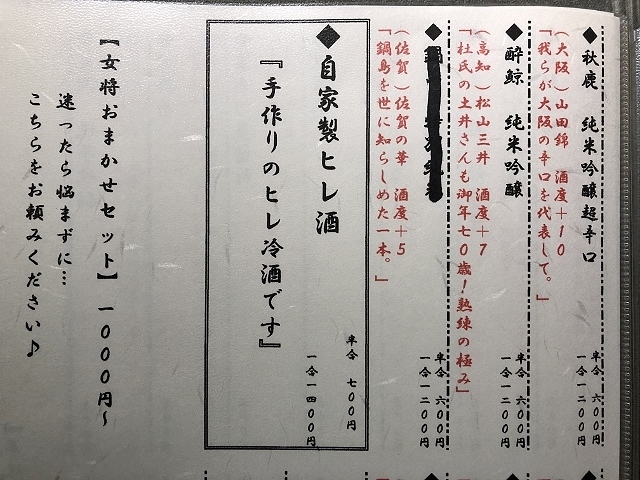 ◆秋鹿 純米吟醸超辛口
(大阪)山田錦 酒度+10
「我らが大阪の辛口を代表して。」
半合 六００円
一合一二００円
◆酔鯨 純米吟醸
(高知)松山三井 酒度+7
「杜氏の土井さんも御年七０歳!熟練の極み」
半合 六００円
一合一二００円
◆
(佐賀)佐賀の華 酒度+5
「鍋島を世に知らしめた一本。」
半合 六００円
一合一二００円
◆自家製ヒレ酒
『手作りのヒレ冷酒です』
半合 七００円
一合一四００円
【女将おまかせセット】 一０００円~
迷ったら悩まずに…
こちらをお頼みください♪